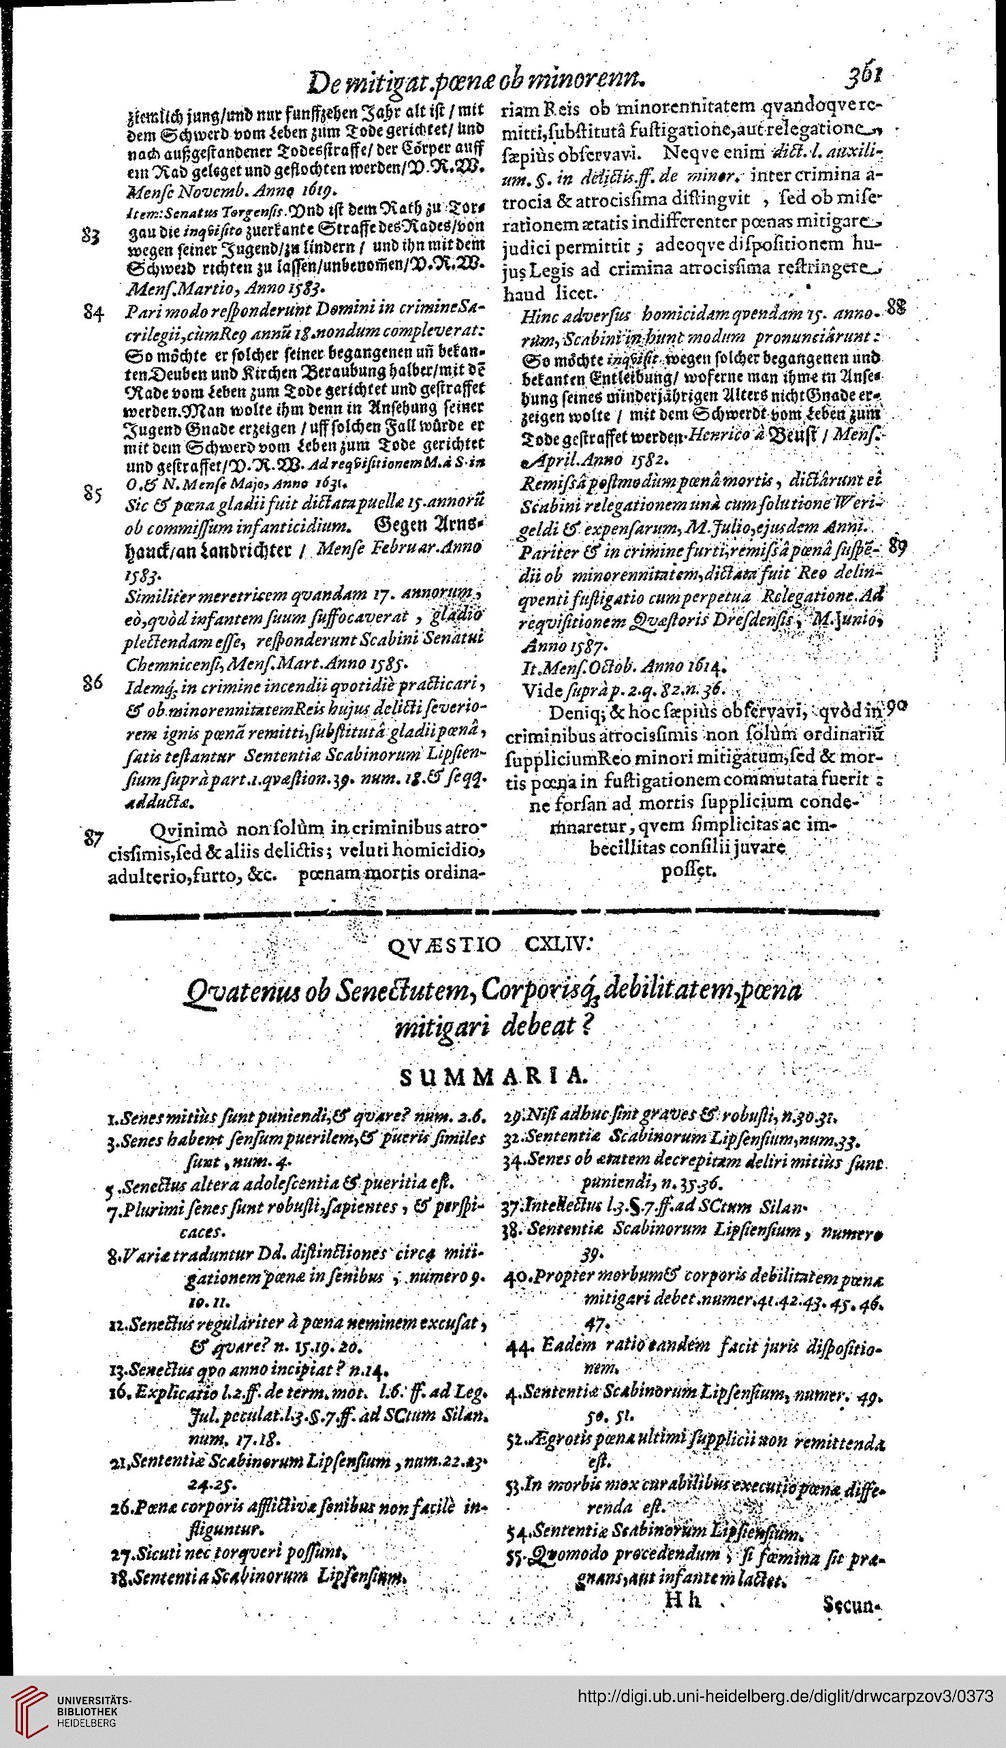 De mitigat. pœnæ ob minorenn. 361
ziemlich jung/und nur funffzehen Jahr alt ist / mit
dem Schwerd vom Leben zum Tode gerichtet/ und
nach außgestandener Todesstraffe/ der Cörper auff
ein Rad geleget und geflochten werden/V.R.W.
Mense Novemb. Anno 1619.
Item: Senatus Torgensis. Und ist dem Rath zu Tor-
83 gau die inqvisito zuerkante Straffe des Rades/von
wegen seiner Jugend/zu lindern / und ihn mit dem
Schwerd richten zu lassen/unbenom̃en/V.R.W.
Mens. Martio, Anno 1583.
84 Pari modo responderunt Domini in crimine Sa-
crilegii, cùm Re9 annũ 18. nondum compleverat:
So möchte er solcher seiner begangenen uñ bekan-
ten Deuben und Kirchen Beraubung halber/mit dẽ
Rade vom Leben zum Tode gerichtet und gestraffet
werden. Man wolte ihm denn in Ansehung seiner
Jugend Gnade erzeigen / uff solchen Fall würde er
mit dem Schwerd vom Leben zum Tode gerichtet
und gestraffet/V.R.W. Ad reqvisitionem M. à S. in
O. & N. Mense Majo, Anno 1631.
85 Sic & pœna gladii fuit dictata puellæ 15. annorũ
ob commissum infanticidium. Gegen Arns-
hauck/an Landrichter / Mense Februar. Anno
1583.
Similiter meretricem qvandam 17. annorum,
eò, qvòd infantem suum suffocaverat , gladio
plectendam esse, responderunt Scabini Senatui
Chemnicensi, Mens. Mart. Anno 1585.
86 Idemq́; in crimine incendii qvotidiè practicari,
& ob minorennitatem Reis hujus delicti severio-
rem ignis pœnã remitti, substitutâ gladii pœnâ,
satis testantur Sententiæ Scabinorum Lipsien-
sium suprà part.1. qvæstion. 39. num. 18. & seqq.
adductæ.
87 Qvinimò non solùm in criminibus atro-
cissimis, sed & aliis delictis; veluti homicidio,
adulterio, furto, &c. pœnam mortis ordina-
riam Reis ob minorennitatem qvandoqve re-
mitti, substitutâ fustigatione, aut relegatione,
sæpiùs observavi. Neqve enim dict. l. auxili-
um. §. in delictis. ff. de minor. inter crimina a-
trocia & atrocissima distingvit , sed ob mise-
rationem ætatis indifferenter pœnas mitigare
judici permittit ; adeoqve dispositionem hu-
jus Legis ad crimina atrocissima restringere
haud licet.
Hinc adversus homicidam qvendam 15. anno- 88
rum, Scabini in hunc modum pronunciârunt :
So möchte inqvisit wegen solcher begangenen und
bekanten Entleibung/ woferne man ihme in Anse-
hung seines minderjährigen Alters nicht Gnade er-
zeigen wolte / mit dem Schwerdt vom Leben zum
Tode gestraffet werden. Henrico à Beust / Mens.
April. Anno 1582.
Remissâ postmodum pœnâ mortis, dictârunt ei
Scabini relegationem unà cum solutione Weri-
geldi & expensarum, M. Julio, ejusdem Anni.
Pariter & in crimine furti, remissâ pœnâ suspẽ- 89
dii ob minorennitatem, dictata fuit Reo delin-
qventi fustigatio cum perpetua Relegatione. Ad
reqvisitionem Qvæstoris Dresdensis, M. Junio,
Anno 1587.
It. Mens. Octob. Anno 1614.
Vide suprà p. 2. q. 82. n. 36.
Deniq; & hoc sæpiùs observavi, qvòd in 90
criminibus atrocissimis non solùm ordinariũ
supplicium Reo minori mitigatum, sed & mor-
tis pœna in fustigationem commutata fuerit :
ne forsan ad mortis supplicium conde-
mnaretur, qvem simplicitas ac im-
becillitas consilii juvare
posset.
QVÆSTIO CXLIV.
Qvatenus ob Senectutem, Corporisq́; debilitatem, pœna
mitigari debeat ?
SUMMARIA.
1. Senes mitiùs sunt puniendi, & qvare? num. 2. 6.
3. Senes habent sensum puerilem, & pueris similes
sunt, num. 4.
5. Senectus altera adolescentia & pueritia est.
7. Plurimi senes sunt robusti, sapientes , & perspi-
caces.
8. Variæ traduntur Dd. distinctiones circa miti-
gationem pœnæ in senibus , numero 9.
10. 11.
12. Senectus regulariter à pœna neminem excusat,
& qvare? n. 15. 19. 20.
13. Senectus qvo anno incipiat ? n. 14.
16. Explicatio l. 2. ff. de term. mot. l. 6. ff. ad Leg.
Jul. peculat. l. 3. §. 7. ff. ad SCtum Silan.
num. 17. 18.
21. Sententiæ Scabinorum Lipsensium , num. 22. 23.
24. 25.
26. Pœnæ corporis afflictivæ senibus non facilè in-
fliguntur.
27. Sicuti nec torqveri possunt.
18. Sententia Scabinorum Lipsensium.
29. Nisi adhuc sint graves & robusti, n. 30. 31.
32. Sententiæ Scabinorum Lipsensium, num. 33.
34. Senes ob ætatem decrepitam deliri mitiùs sunt
puniendi, n. 35. 36.
37. Intellectus l. 3. §. 7. ff. ad SCtum Silan.
38. Sententiæ Scabinorum Lipsensium , numero
39.
40. Propter morbum & corporis debilitatem pœnæ
mitigari debet. numer. 41. 42. 43. 45. 46.
47.
44. Eadem ratio eandem facit juris dispositio-
nem.
4. Sententiæ Scabinorum Lipsensium, numer. 49.
50. 51.
52. Ægrotis pœna ultimi supplicii non remittenda
est.
53. In morbis mox curabilibus executio pœnæ diffe-
renda est.
54. Sententiæ Scabinorum Lipsiensium.
55. Qvomodo procedendum , si fœmina sit præ-
gnans, aut infantem lactet.
H h Secun-
UNIVERSITÄTS-
BIBLIOTHEK
HEIDELBERG
http://digi.ub.uni-heidelberg.de/diglit/drwcarpzov3/0373